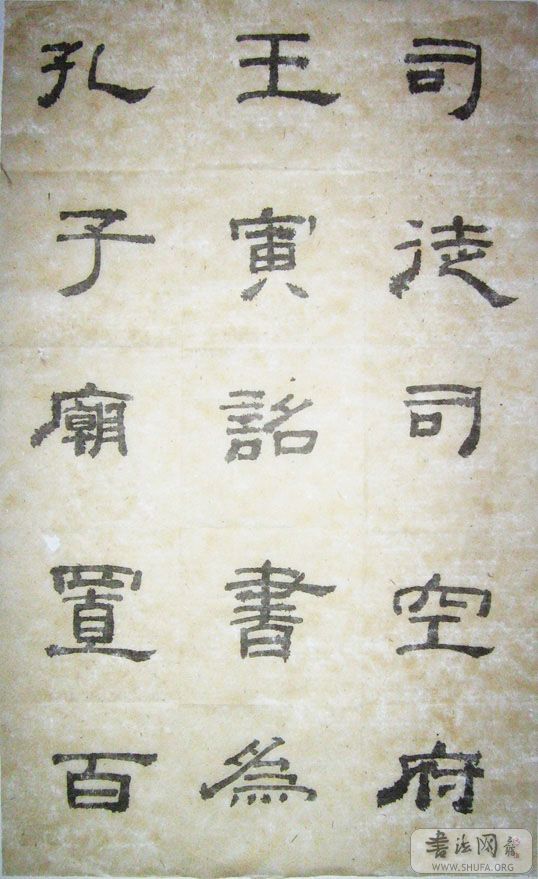 司徒司空府
王寅詔書為
孔子廟置百
書法网
WWW.SHUFA.ORG